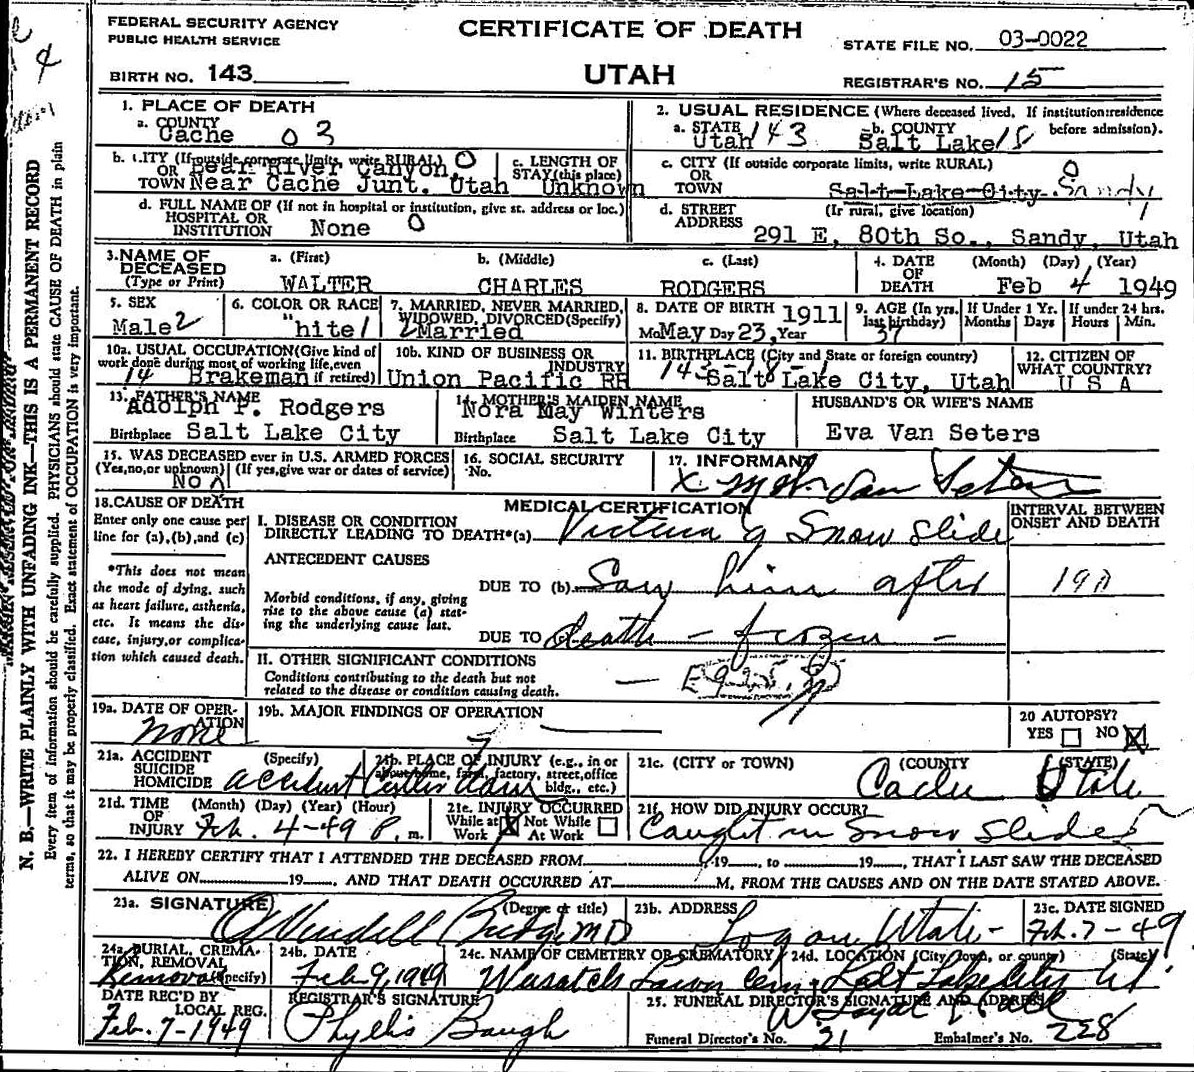 FEDERAL SECURITY AGENCY
PUBLIC HEALTH SERVICE
CERTIFICATE OF DEATH
STATE FILE NO. 03-0022
BIRTH NO. 143
UTAH
REGISTRAR'S NO. 15
1. PLACE OF DEATH
a. COUNTY
Cache 03
2. USUAL RESIDENCE (Where deceased lived. If institution:residence before admission).
a. STATE Utah 143 b. COUNTY Salt Lake 18
b. CITY (If outside corporate limits, write RURAL) 0
OR Bear River Canyon,
TOWN Near Cache Junt. Utah
c. LENGTH OF STAY (this place)
Unknown
c. CITY (If outside corporate limits, write RURAL)
OR
TOWN Salt Lake City Sandy
d. FULL NAME OF (If not in hospital or institution, give st. address or loc.)
HOSPITAL OR
INSTITUTION None 0
d. STREET (If rural, give location)
ADDRESS 291 E. 80th So., Sandy, Utah
3. NAME OF DECEASED
(Type or Print)
a. (First) b. (Middle) c. (Last)
WALTER CHARLES RODGERS
4. DATE OF DEATH (Month) (Day) (Year)
Feb 4 1949
5. SEX
Male 2
6. COLOR OR RACE
"hite 1
7. MARRIED, NEVER MARRIED, WIDOWED, DIVORCED (Specify)
2 Married
8. DATE OF BIRTH 1911
Mo May Day 23, Year
9. AGE (In yrs. last birthday)
37
If Under 1 Yr. Months Days
If under 24 hrs. Hours Min.
10a. USUAL OCCUPATION (Give kind of work done during most of working life, even if retired)
14 Brakeman
10b. KIND OF BUSINESS OR INDUSTRY
Union Pacific RR
11. BIRTHPLACE (City and State or foreign country)
143-18-1
Salt Lake City, Utah
12. CITIZEN OF WHAT COUNTRY?
U S A
13. FATHER'S NAME
Adolph P. Rodgers
Birthplace Salt Lake City
14. MOTHER'S MAIDEN NAME
Nora May Winters
Birthplace Salt Lake City
HUSBAND'S OR WIFE'S NAME
Eva Van Seters
15. WAS DECEASED ever in U.S. ARMED FORCES
(Yes, no, or unknown) (If yes, give war or dates of service)
No
16. SOCIAL SECURITY No.
17. INFORMANT
X Van Seters
18. CAUSE OF DEATH
Enter only one cause per line for (a), (b), and (c)
*This does not mean the mode of dying, such as heart failure, asthenia, etc. It means the disease, injury, or complication which caused death.
MEDICAL CERTIFICATION
INTERVAL BETWEEN ONSET AND DEATH
I. DISEASE OR CONDITION
DIRECTLY LEADING TO DEATH*(a) Victim of Snow slide
ANTECEDENT CAUSES
DUE TO (b) Saw him after
Morbid conditions, if any, giving rise to the above cause (a) stating the underlying cause last.
DUE TO death - frozen -
II. OTHER SIGNIFICANT CONDITIONS
Conditions contributing to the death but not related to the disease or condition causing death.
19a. DATE OF OPERATION
none
19b. MAJOR FINDINGS OF OPERATION
20 AUTOPSY?
YES NO X
21a. ACCIDENT (Specify)
SUICIDE
HOMICIDE accident
21b. PLACE OF INJURY (e.g., in or about home, farm, factory, street, office bldg., etc.)
Cutler Dam
21c. (CITY or TOWN) (COUNTY (STATE)
Cache Utah
21d. TIME OF INJURY (Month) (Day) (Year) (Hour)
Feb. 4-49 P. m.
21e. INJURY OCCURRED
While at Work X Not While At Work
21f. HOW DID INJURY OCCUR?
Caught in Snow Slides
22. I HEREBY CERTIFY THAT I ATTENDED THE DECEASED FROM 19, to 19, THAT I LAST SAW THE DECEASED
ALIVE ON 19, AND THAT DEATH OCCURRED AT M, FROM THE CAUSES AND ON THE DATE STATED ABOVE.
23a. SIGNATURE (Degree or title)
O Wendell Budge MD
23b. ADDRESS
Logan Utah -
23c. DATE SIGNED
Feb. 7-49
24a. BURIAL, CREMATION, REMOVAL (Specify)
Removal
24b. DATE
Feb 9, 1949
24c. NAME OF CEMETERY OR CREMATORY
Wasatch Lawn Cem.
24d. LOCATION (City, town, or county) (State)
Salt Lake City Ut.
DATE REC'D BY LOCAL REG.
Feb. 7-1949
REGISTRAR'S SIGNATURE
Phyllis Baugh
25. FUNERAL DIRECTOR'S SIGNATURE AND ADDRESS
W. Loyal Hall
Funeral Director's No. 21 Embalmer's No. 228
N. B.—WRITE PLAINLY WITH UNFADING INK—THIS IS A PERMANENT RECORD
Every item of information should be carefully supplied. PHYSICIANS should state CAUSE OF DEATH in plain
terms, so that it may be properly classified. Exact statement of OCCUPATION is very important.